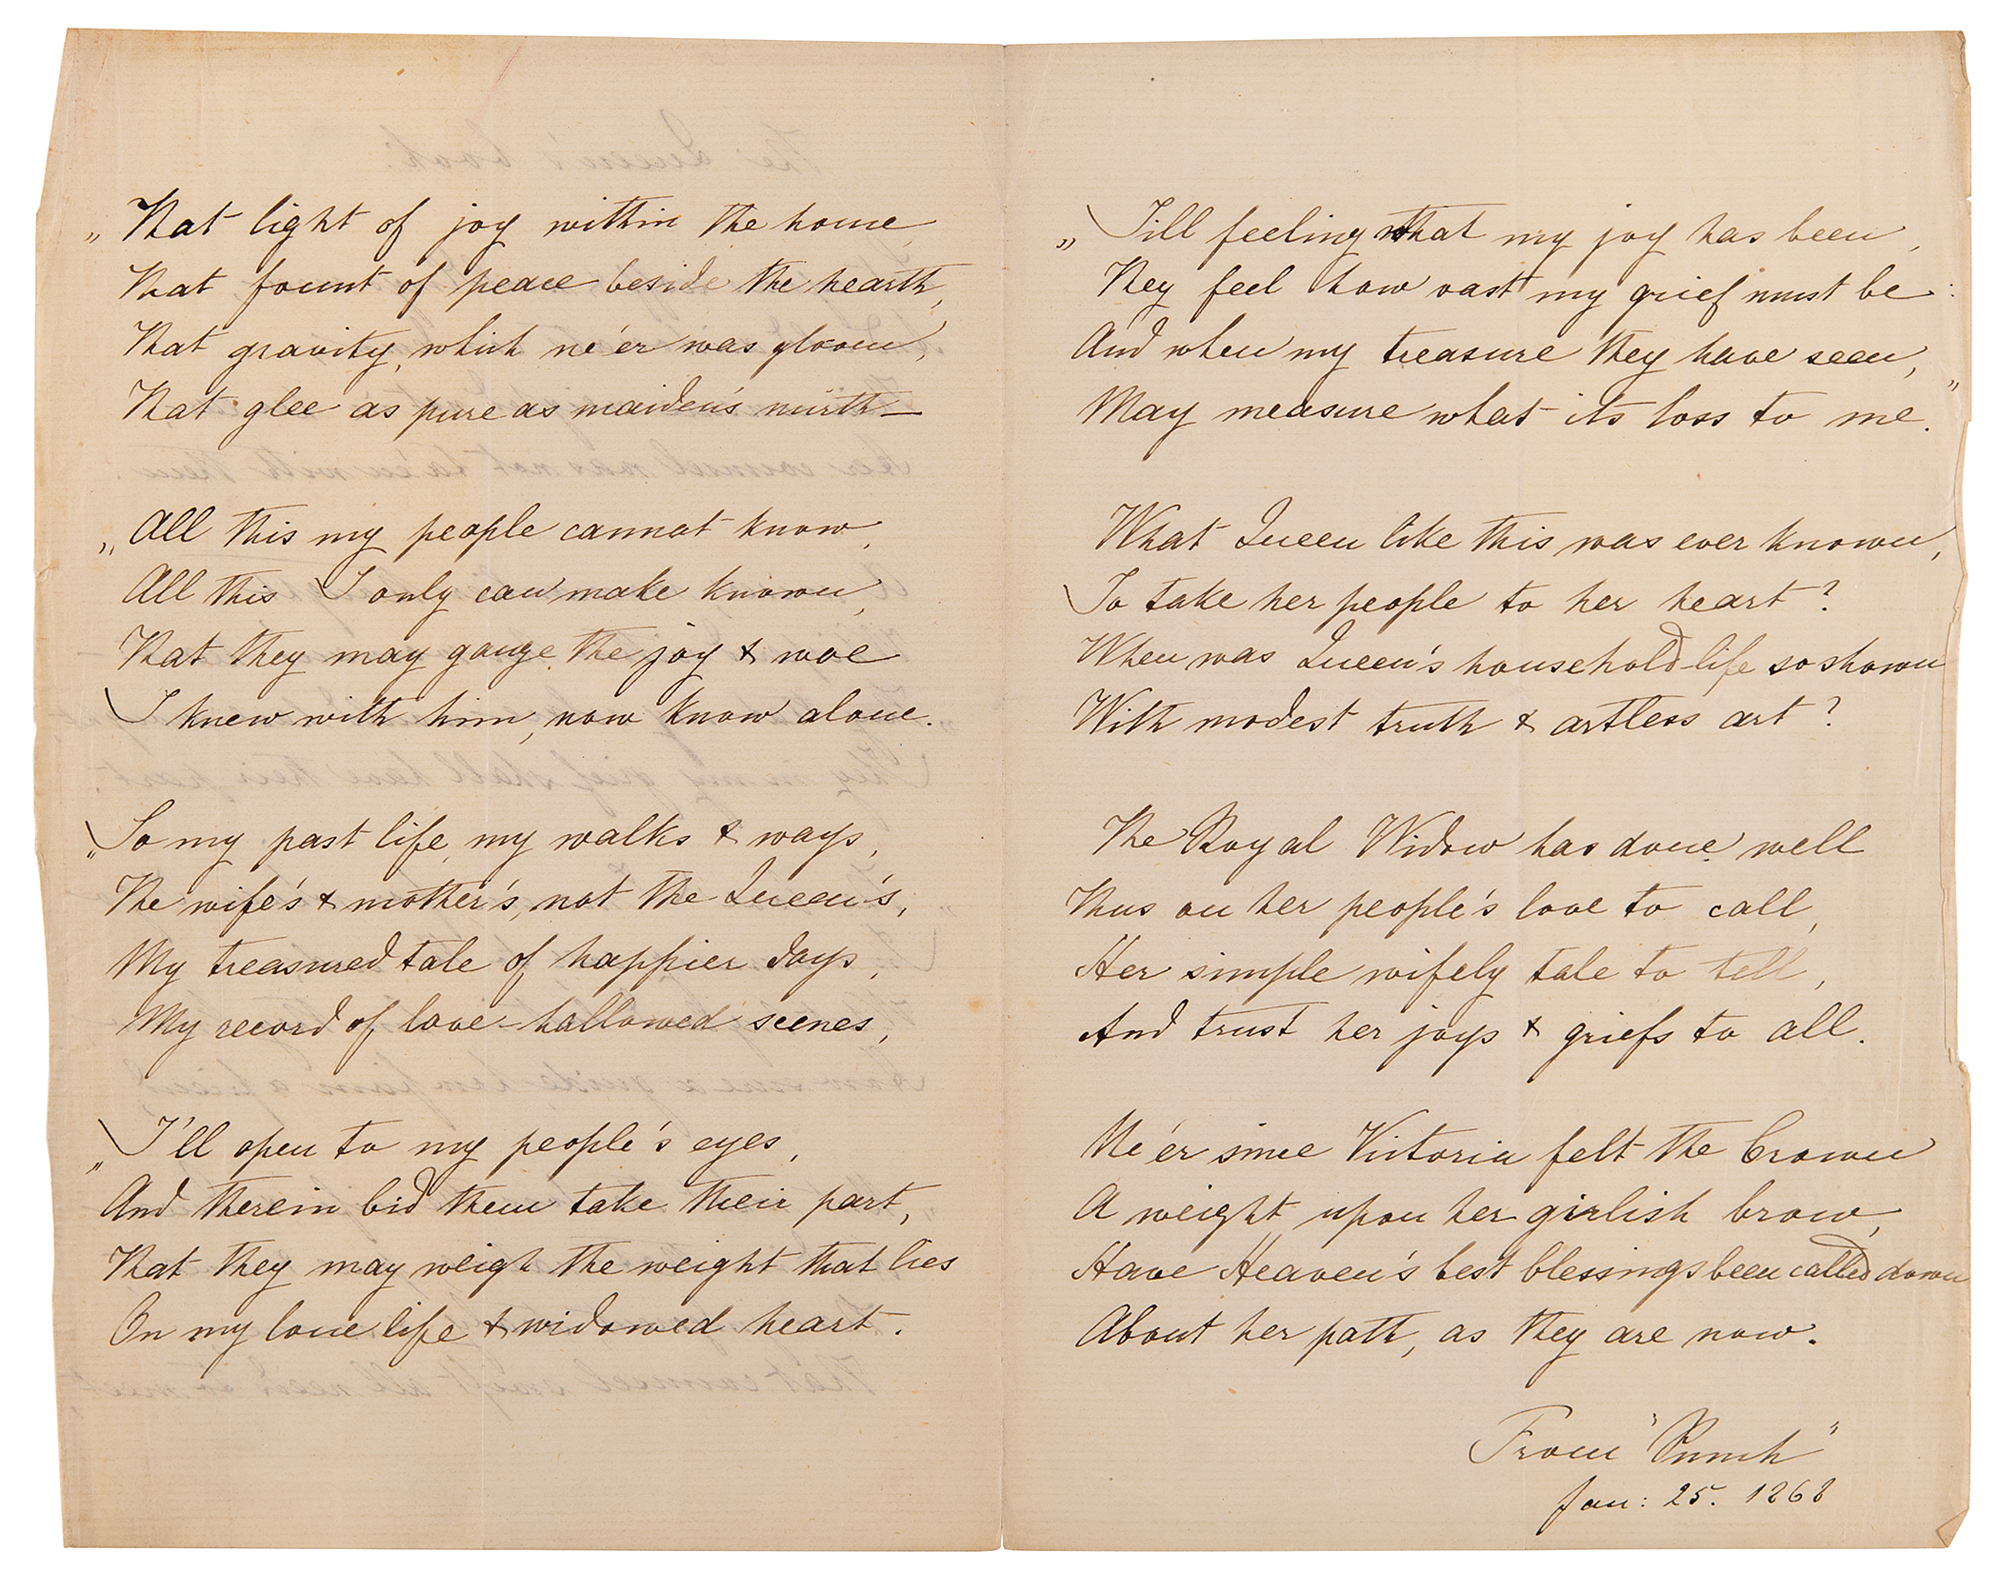 „ That light of joy within the home,
That fount of peace beside the hearth,
That gravity, which ne'er was gloom,
That glee as pure as maiden's mirth—
„ All this my people cannot know,
All this I only can make known,
That they may gauge the joy & woe
I knew with him, now know alone.
„ So my past life, my walks & ways,
The wife's & mother's, not the Queen's,
My treasured tale of happier days,
My record of love-hallowed scenes,
„ I'll open to my people's eyes,
And therein bid them take their part,
That they may weigh the weight that lies
On my lone life & widowed heart.
„ Till feeling what my joy has been,
They feel how vast my grief must be:
And when my treasure they have seen,
May measure what its loss to me."
What Queen like this was ever known,
To take her people to her heart?
When was Queen's household-life so shown
With modest truth & artless art?
The Royal Widow has done well
Thus on her people's love to call,
Her simple wifely tale to tell,
And trust her joys & griefs to all.
Ne'er since Victoria felt the Crown
A weight upon her girlish brow,
Have Heaven's best blessings been called down
About her path, as they are now.
From "Punch"
Jan: 25. 1868